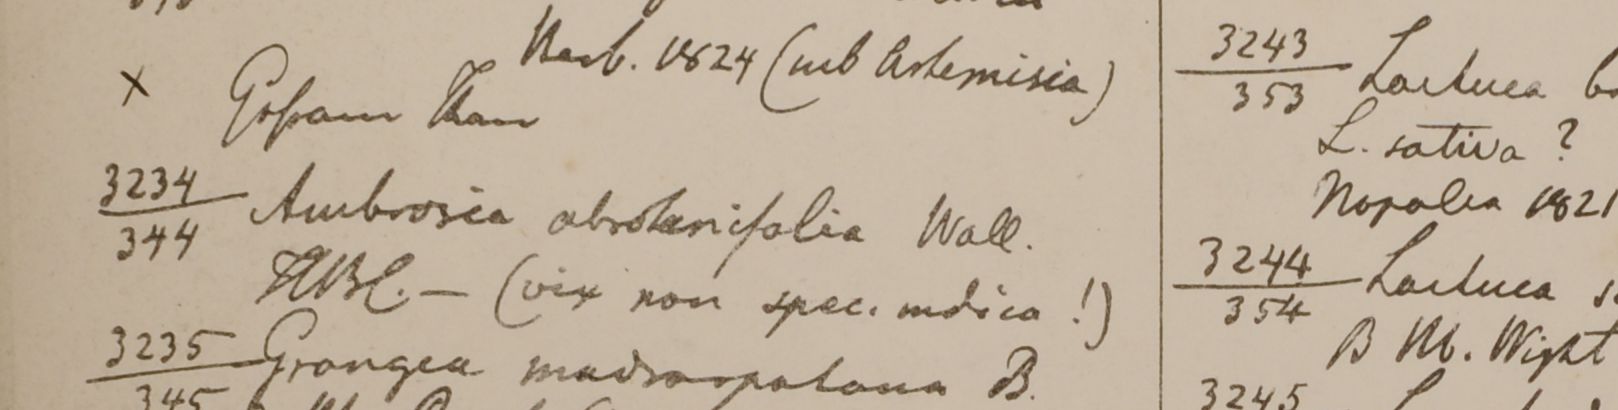 Herb. 1824 (sub Artemisia)
x Gossain Than
3234
344
Ambrosia abrotanifolia Wall.
HBC. — (vix non spec. indica!)
3235
345
Grangea madraspatana B.
3243
353
Lactuca
L. sativa ?
Nopalea 1821
3244
354
Lactuca
B M. Wight
3245